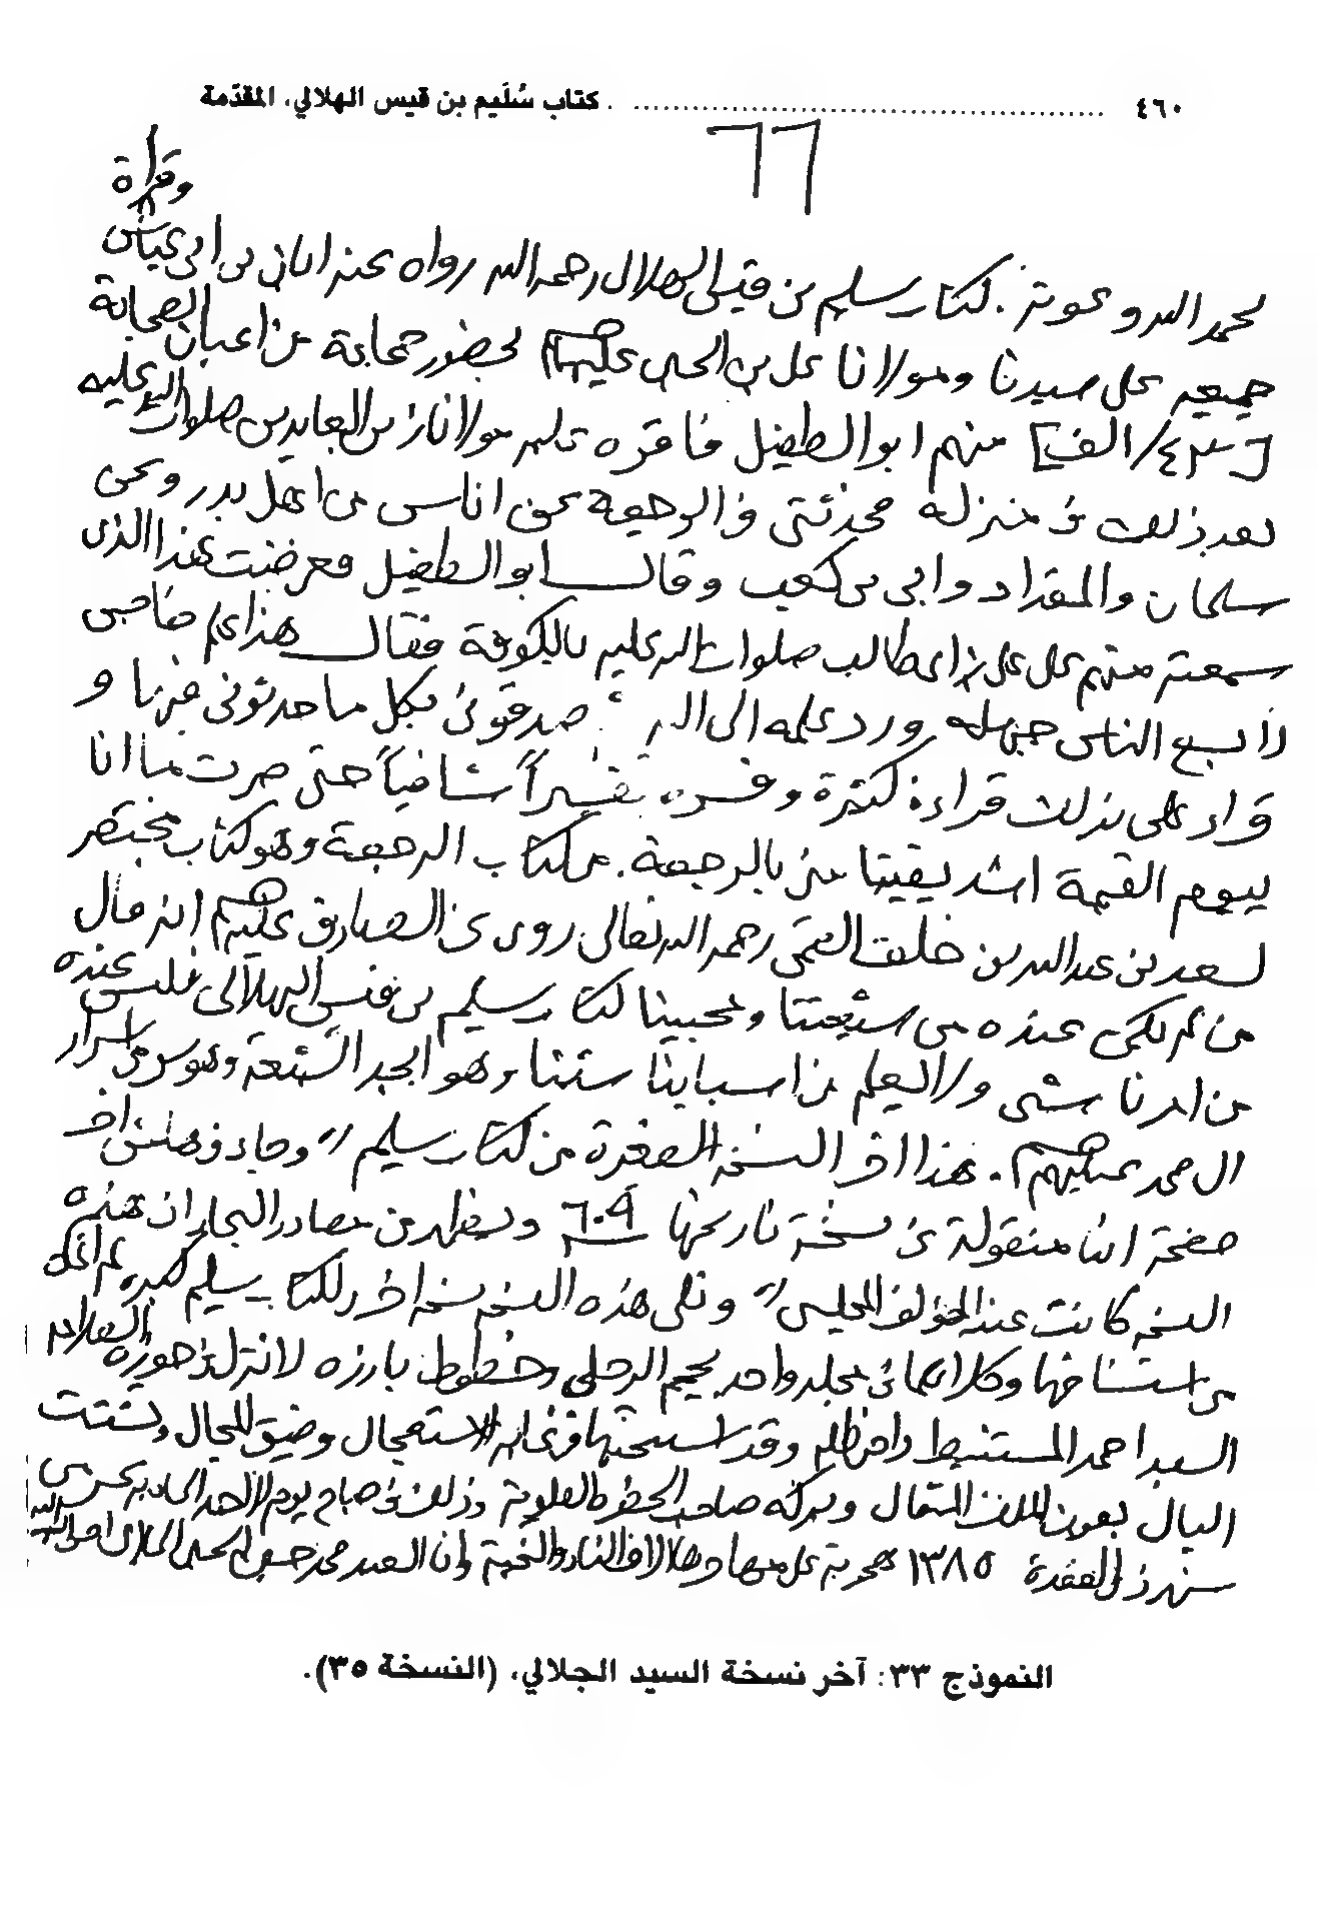 ٤٦٠ ........ كتاب سُلَيم بن قيس الهلالي، المقدّمة
٦٦
وقراه
بحمد الله وعونه. كتاب سليم بن قيس الهلالي رحمه الله رواه عنه ابان بن ابي عياش
جميعه على سيدنا ومولانا علي بن الحسين عليهما بحضور جماعة من اعيان الصحابة
[٤٣/الف] منهم ابو الطفيل فاقره عليه مولانا زين العابدين صلوات الله عليه
بعد ذلك في منزله فحدثني في الرجعة عن اناس من اهل بدر وعن
سلمان والمقداد وابي بن كعب وقال ابو الطفيل فعرضت هذا الذي
سمعته منهم على علي بن ابي طالب صلوات الله عليه بالكوفة فقال هذا علم خاص
لا يسع الناس جهله ورد علمه الى الله صدقوني بكل ما حدثوني فيها و
قراء على بذلك قراءة كثيرة وفسره تفسيراً شافياً حتى صرت ما انا
بيوم القيمة اشد يقينا مني بالرجعة. من كتاب الرجعة وهو كتاب مختصر
لسعد بن عبد الله بن خلف القمي رحمه الله تعالى روى عن الصادق عليه انه قال
من لم يكن عنده من شيعتنا ومحبينا كتاب سليم بن قيس الهلالي فليس عنده
من امرنا شي ولا يعلم من اسبابنا شيئا وهو ابجد الشيعة وهو سر من اسرار
ال محمد عليهم. هذا اخر النسخة الصغيرة من كتاب سليم " وجاء في هامش اخر
صفحة انها منقولة عن نسخة تاريخها ٦٠٩ ويظهر من مصادر البحار ان هذه
النسخه كانت عند المؤلف المجلسي " وتلي هذه النسخه نسخه اخرى لكتاب سليم كبيره
من استنساخها وكلاهما في مجلد واحد بحجم الرحلي وخطوط بارزه لا تزل في حوزه
السيد احمد المستنبط وقد استنسختها في الاستعجال وضيق المجال وتشتت
البال بعون الملك المتعال وببركه صاحب الحضره العلوية وذلك في صباح يوم الاحد الحاديه عشر من
شهر ذي القعدة ١٣٨٥ هجرية على مهاجرها الاف الثناء والتحية وانا العبد محمد حسين الحسيني الجلالي
النموذج ٣٣: آخر نسخة السيد الجلالي، (النسخة ٣٥).